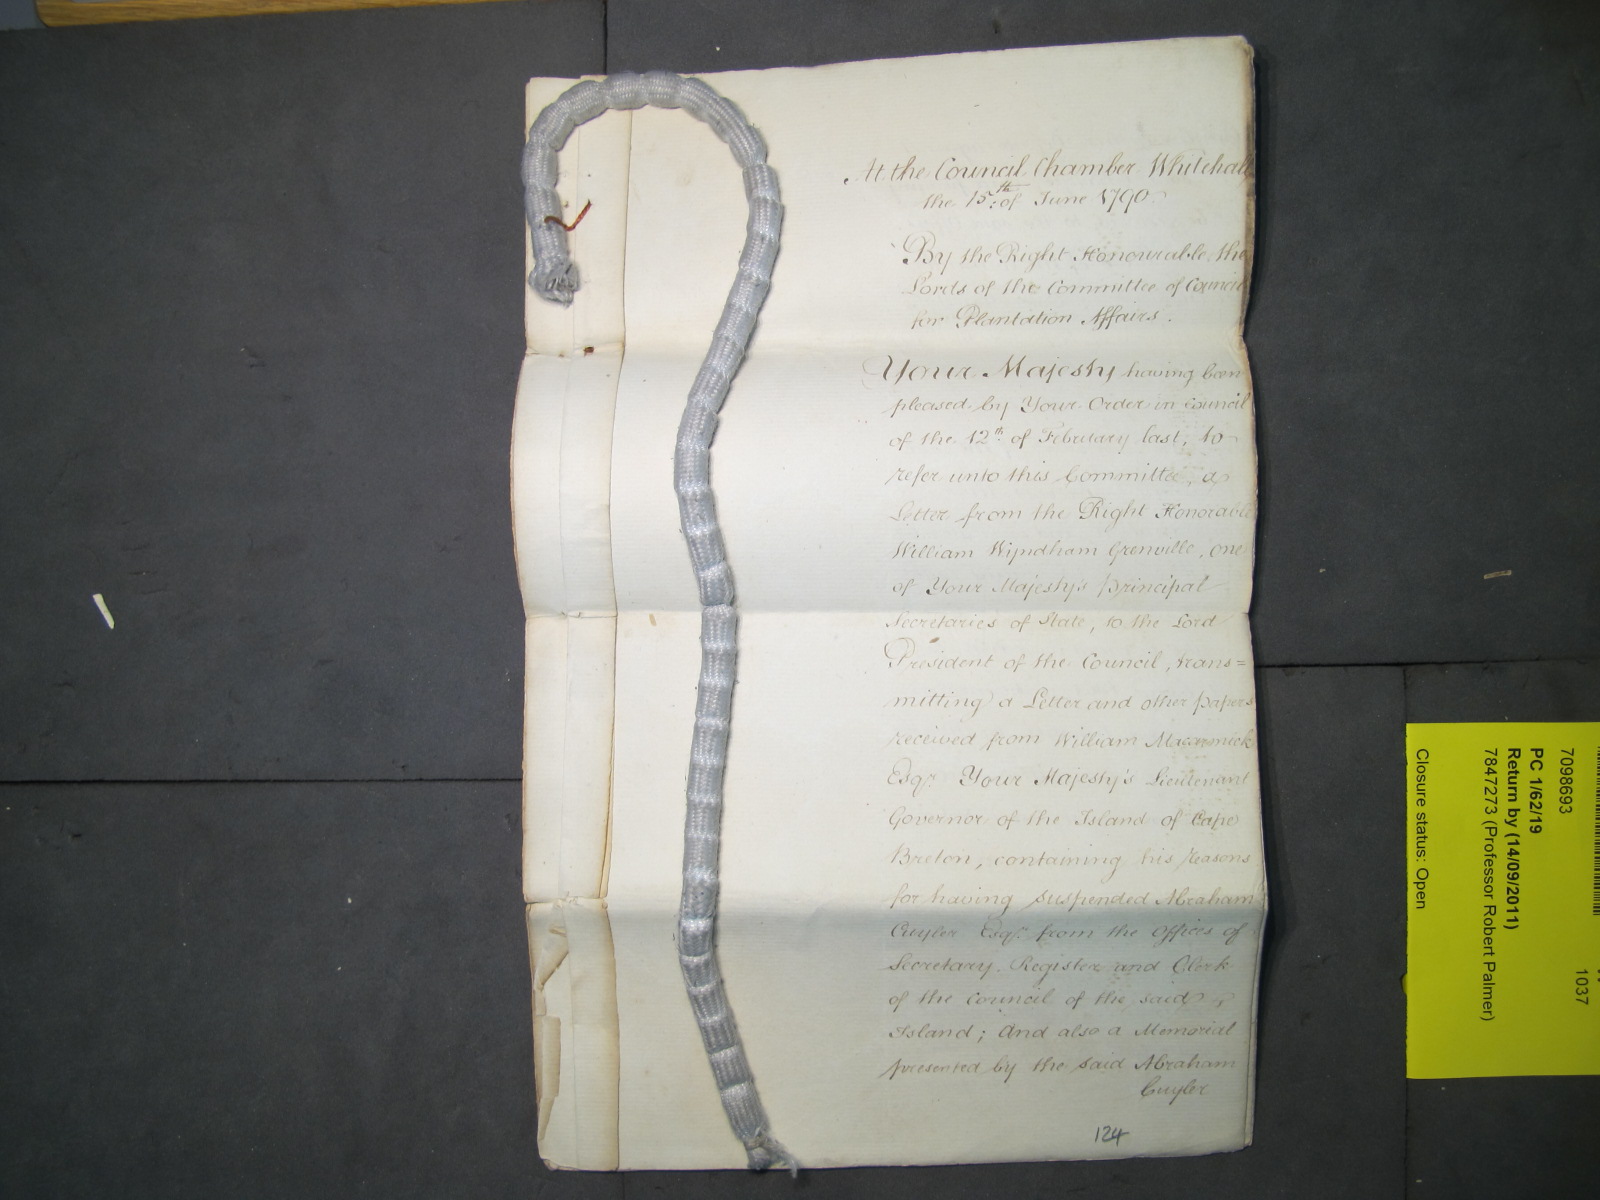 At the Council Chamber Whitehall
the 15th of June 1790
By the Right Honourable the
Lords of the Committee of Council
for Plantation Affairs.
Your Majesty having been
pleased by Your Order in Council
of the 12th of February last, to
refer unto this Committee, a
Letter from the Right Honorable
William Wyndham Grenville, one
of Your Majesty's Principal
Secretaries of State, to the Lord
President of the Council, trans=
mitting a Letter and other papers
received from William Macarmick
Esqr. Your Majesty's Lieutenant
Governor of the Island of Cape
Breton, containing his reasons
for having suspended Abraham
Cuyler Esqr. from the Offices of
Secretary, Register and Clerk
of the Council of the said
Island; And also a Memorial
presented by the said Abraham
Cuyler
124
1037
7098693
PC 1/62/19
Return by (14/09/2011)
7847273 (Professor Robert Palmer)
Closure status: Open